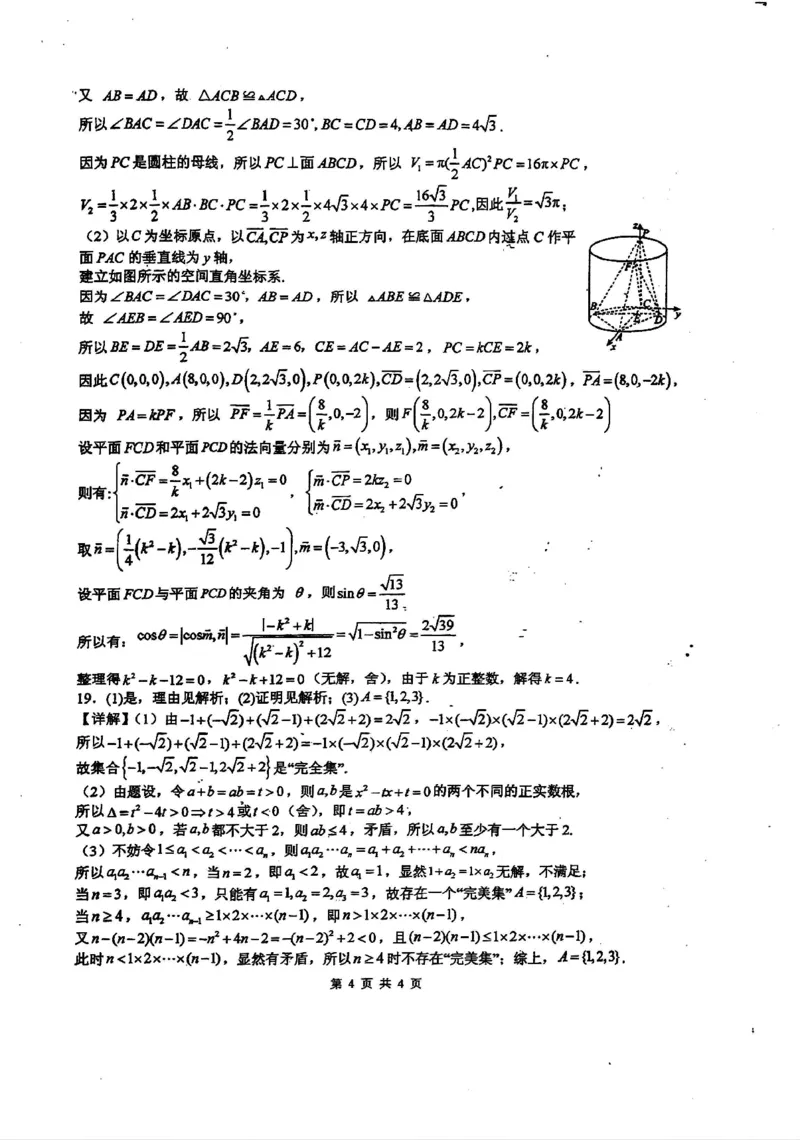 又 AB=AD，故 △ACB≌△ACD，
所以∠BAC=∠DAC=1/2∠BAD=30°, BC=CD=4, AB=AD=4√3.
因为PC是圆柱的母线，所以PC⊥面ABCD，所以 V₁=π(1/2 AC)²PC=16π×PC，
V₂=1/3×2×1/2×AB·BC·PC=1/3×2×1/2×4√3×4×PC=16√3/3 PC,因此V₁/V₂=√3π；
（2）以C为坐标原点，以CA,CP为x,z轴正方向，在底面ABCD内过点C作平
面PAC的垂直线为y轴，
建立如图所示的空间直角坐标系.
因为∠BAC=∠DAC=30°，AB=AD，所以 △ABE≌△ADE，
故 ∠AEB=∠AED=90°，
所以BE=DE=1/2 AB=2√3，AE=6，CE=AC-AE=2，PC=kCE=2k，
因此C(0,0,0),A(8,0,0),D(2,2√3,0),P(0,0,2k),CD=(2,2√3,0),CP=(0,0,2k)，PA=(8,0,-2k)，
因为 PA=kPF，所以 PF=1/k PA=(8/k,0,-2)，则F(8/k,0,2k-2),CF=(8/k,0,2k-2)
设平面FCD和平面PCD的法向量分别为n=(x₁,y₁,z₁),m=(x₂,y₂,z₂)，
则有:{n·CF=8/k x₁+(2k-2)z₁=0，n·CD=2x₁+2√3y₁=0，{m·CP=2kz₂=0，m·CD=2x₂+2√3y₂=0，
取n=(1/4(k²-k),-√3/12(k²-k),-1),m=(-3,√3,0)，
设平面FCD与平面PCD的夹角为 θ，则sinθ=√13/13，
所以有：cosθ=|cosm,n|=|-k²+k|/√((k²-k)²+12)=√(1-sin²θ)=2√39/13，
整理得k²-k-12=0，k²-k+12=0（无解，舍），由于k为正整数，解得k=4.
19．(1)是，理由见解析；(2)证明见解析；(3)A={1,2,3}.
【详解】（1）由-1+(-√2)+(√2-1)+(2√2+2)=2√2，-1×(-√2)×(√2-1)×(2√2+2)=2√2，
所以-1+(-√2)+(√2-1)+(2√2+2)=-1×(-√2)×(√2-1)×(2√2+2)，
故集合{-1,-√2,√2-1,2√2+2}是“完全集”.
（2）由题设，令a+b=ab=t>0，则a,b是x²-tx+t=0的两个不同的正实数根，
所以Δ=t²-4t>0⇒t>4或t<0（舍），即t=ab>4，
又a>0,b>0，若a,b都不大于2，则ab≤4，矛盾，所以a,b至少有一个大于2.
（3）不妨令1≤a₁<a₂<⋯<aₙ，则a₁a₂⋯aₙ=a₁+a₂+⋯+aₙ<naₙ，
所以a₁a₂⋯aₙ₋₁<n，当n=2，即a₁<2，故a₁=1，显然1+a₂=1×a₂无解，不满足；
当n=3，即a₁a₂<3，只能有a₁=1,a₂=2,a₃=3，故存在一个“完美集”A={1,2,3}；
当n≥4，a₁a₂⋯aₙ₋₁≥1×2×⋯×(n-1)，即n>1×2×⋯×(n-1)，
又n-(n-2)(n-1)=-n²+4n-2=-(n-2)²+2<0，且(n-2)(n-1)≤1×2×⋯×(n-1)，
此时n<1×2×⋯×(n-1)，显然有矛盾，所以n≥4时不存在“完美集”；综上，A={1,2,3}.
z
P
F
B
C
E
D
y
A
x
第 4 页 共 4 页